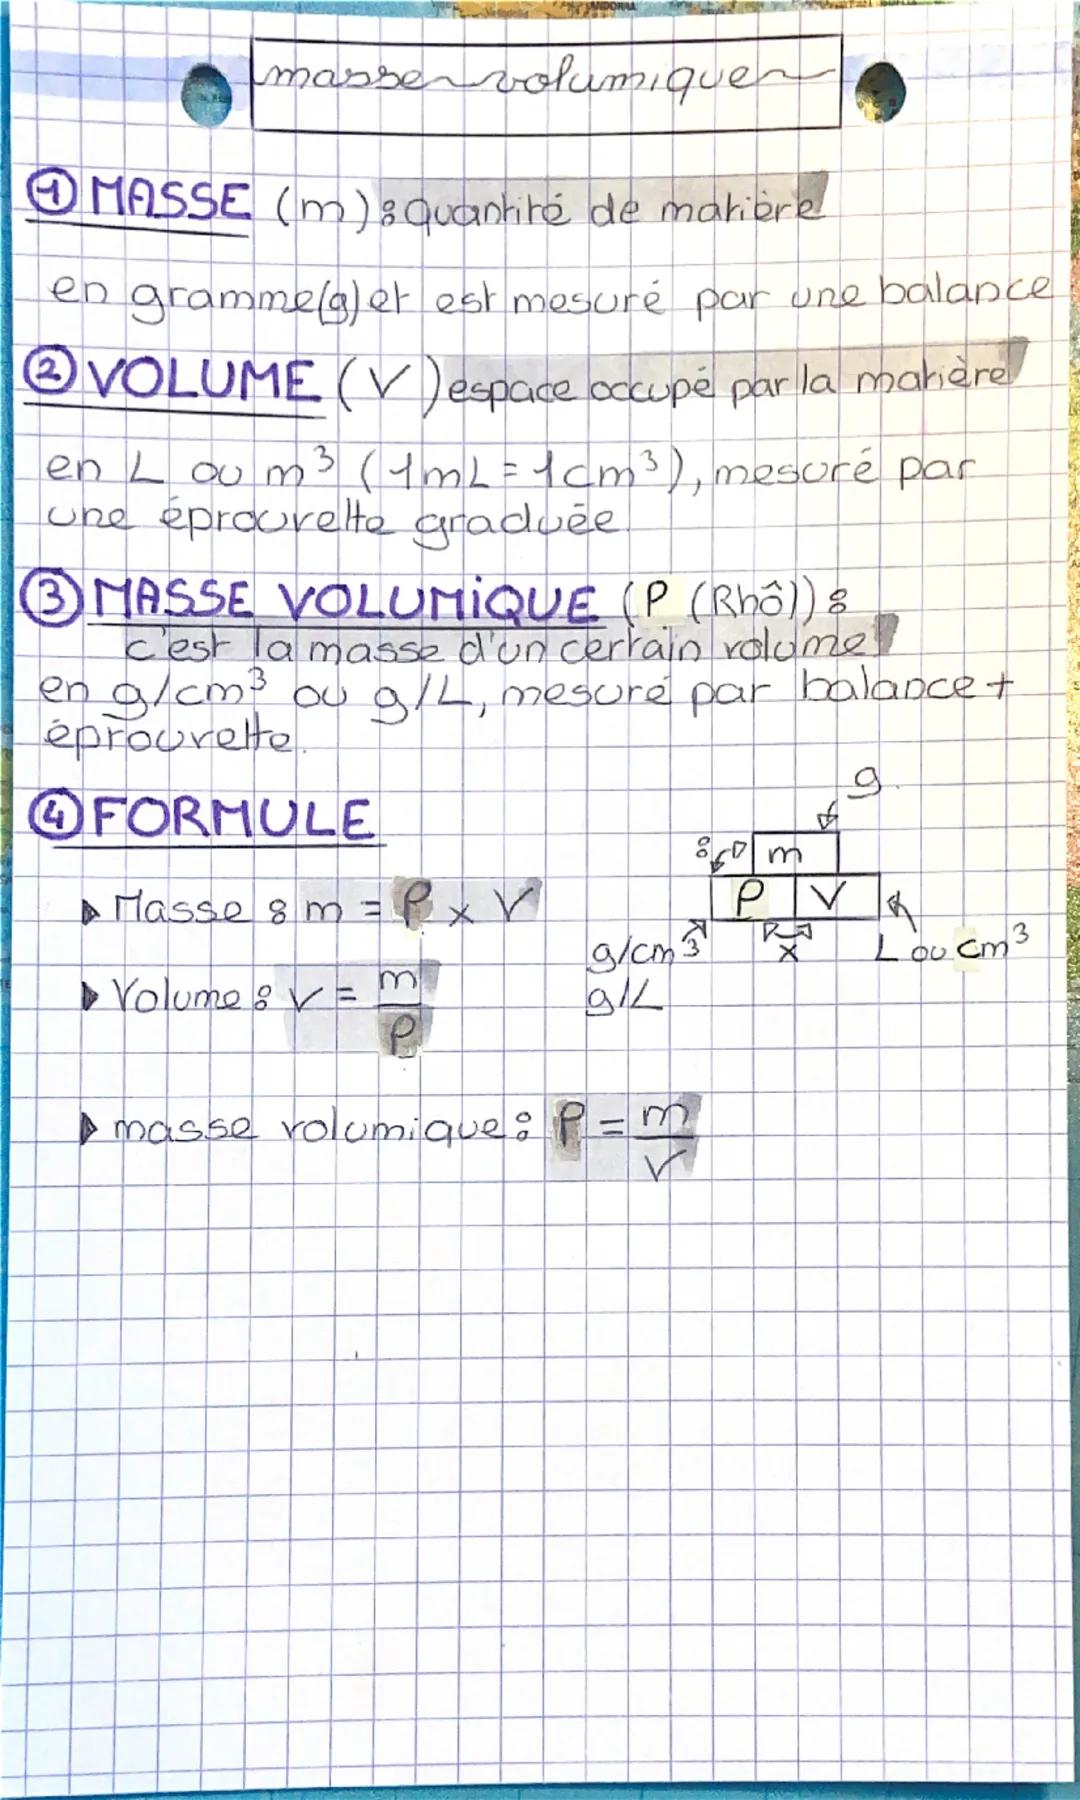 masse volumique
① MASSE (m) : quantité de matière
en gramme(g) et est mesuré par une balance
② VOLUME (V) espace occupé par la matière
en L ou m³ (1mL = 1cm³), mesuré par
une éprouvette graduée.
③ MASSE VOLUMIQUE (ρ (Rhô)) :
c'est la masse d'un certain volume
en g/cm³ ou g/L, mesuré par balance +
éprouvette.
④ FORMULE
g
: m
ρ V
x
g/cm³
g/L
L ou cm³
▸ Masse : m = ρ x V
▸ Volume : V = m
ρ
▸ masse volumique : ρ = m
V